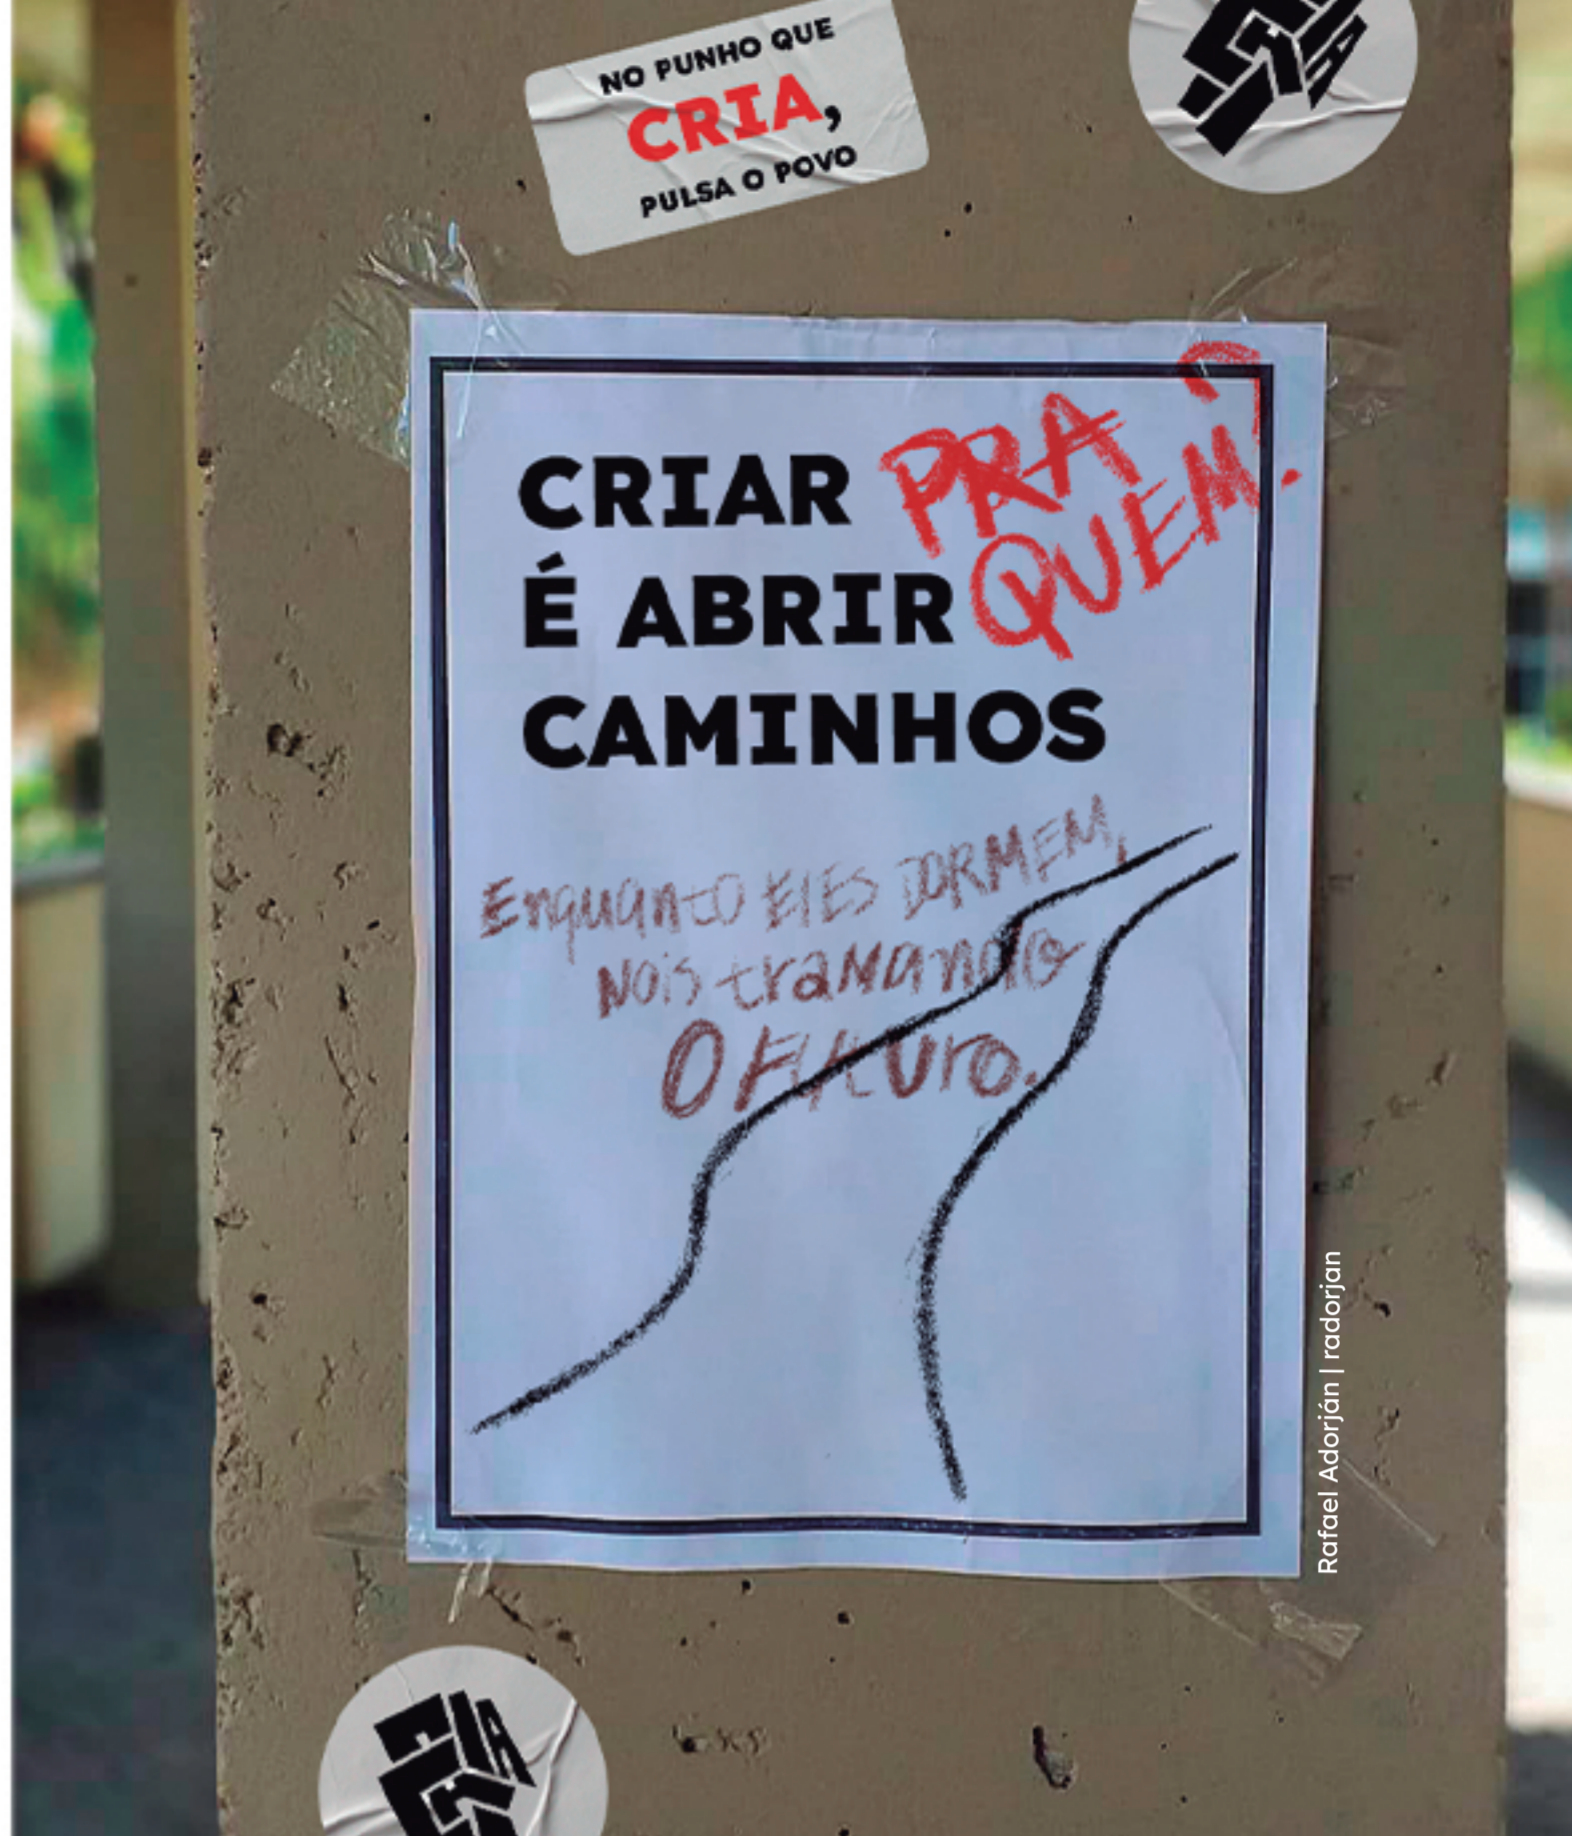 NO PUNHO QUE
CRIA,
PULSA O POVO
CRIAR
É ABRIR
CAMINHOS
PRA
QUEM?
Enquanto ElES DORMEM,
Nois traMando
O FUtUro.
Rafael Adorján | radorjan
CRIA